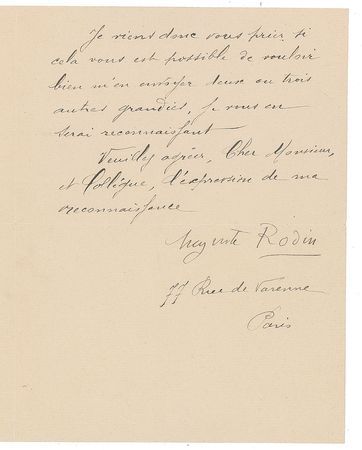 Je viens donc vous prier, si
cela vous est possible de vouloir
bien m'en envoyer deux ou trois
autres grandies, je vous en
serai reconnaissant
Veuillez agréer, Cher Monsieur,
et Collègue, l'expression de ma
reconnaissance
Auguste Rodin
77 Rue de Varenne
Paris